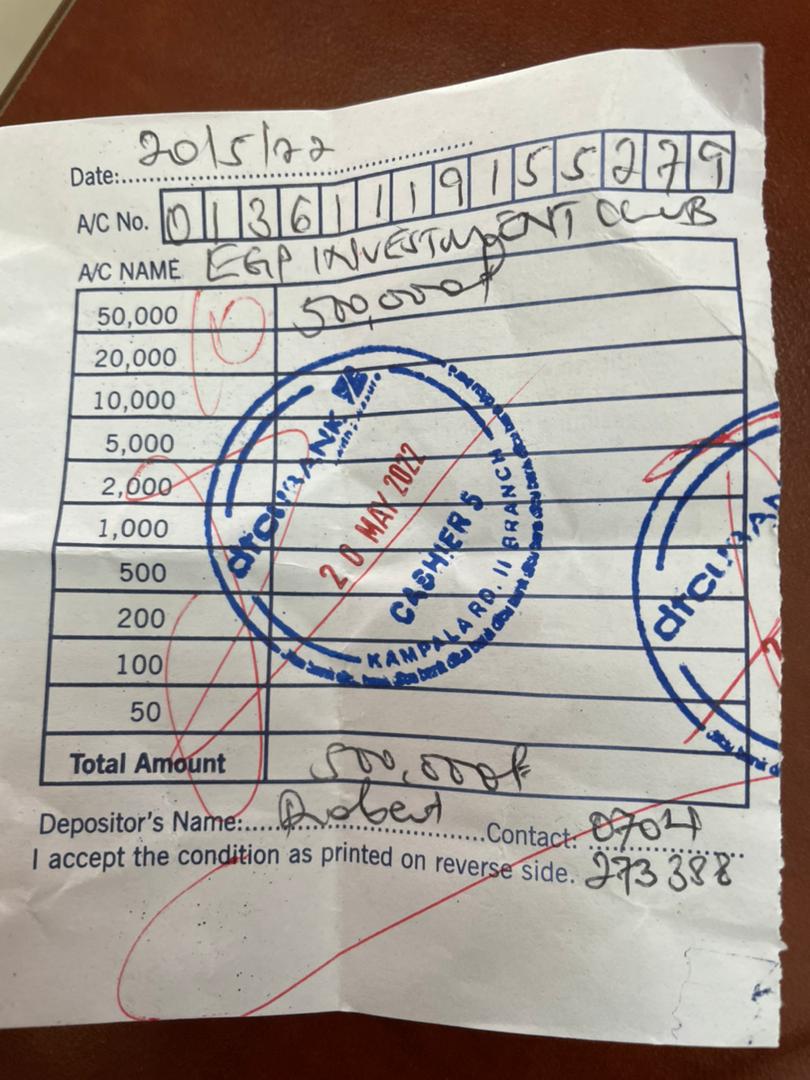 Date: 20/5/22
A/C No. 01361119155279
A/C NAME EGP INVESTMENT CLUB
50,000 500,000/=
20,000
10,000
5,000
2,000
1,000
500
200
100
50
dfcu BANK
20 MAY 2022
CASHIER 5
KAMPALA RD. II BRANCH
dfcu BAN
Total Amount 500,000/=
Depositor's Name: Robert Contact: 0704
I accept the condition as printed on reverse side. 273388